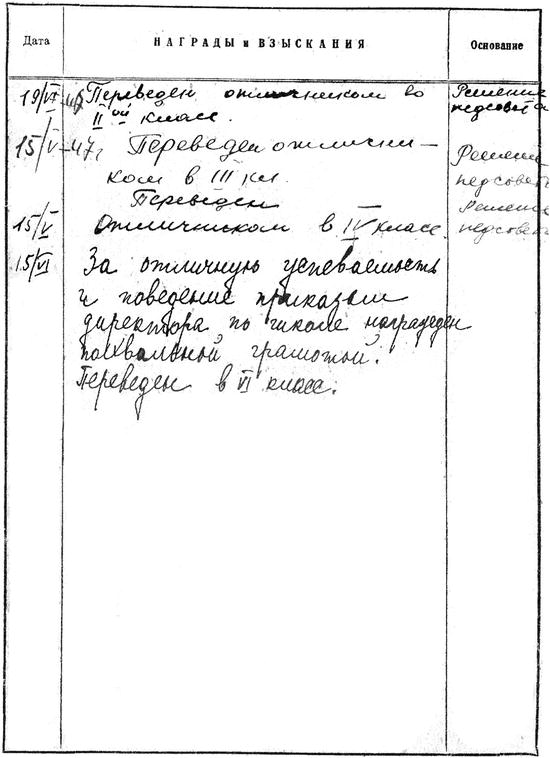 Дата НАГРАДЫ и ВЗЫСКАНИЯ Основание
19/VI-46 Переведен отличником во Решение
II ой класс. педсовета
15/V-47г Переведен отлични- Решени
ком в III кл. педсовет
Переведен Решение
15/V Отличником в IV класс. педсовет
15/VI За отличную успеваемость
и поведение приказом
директора по школе награжден
похвальной грамотой.
Переведен в VI класс.